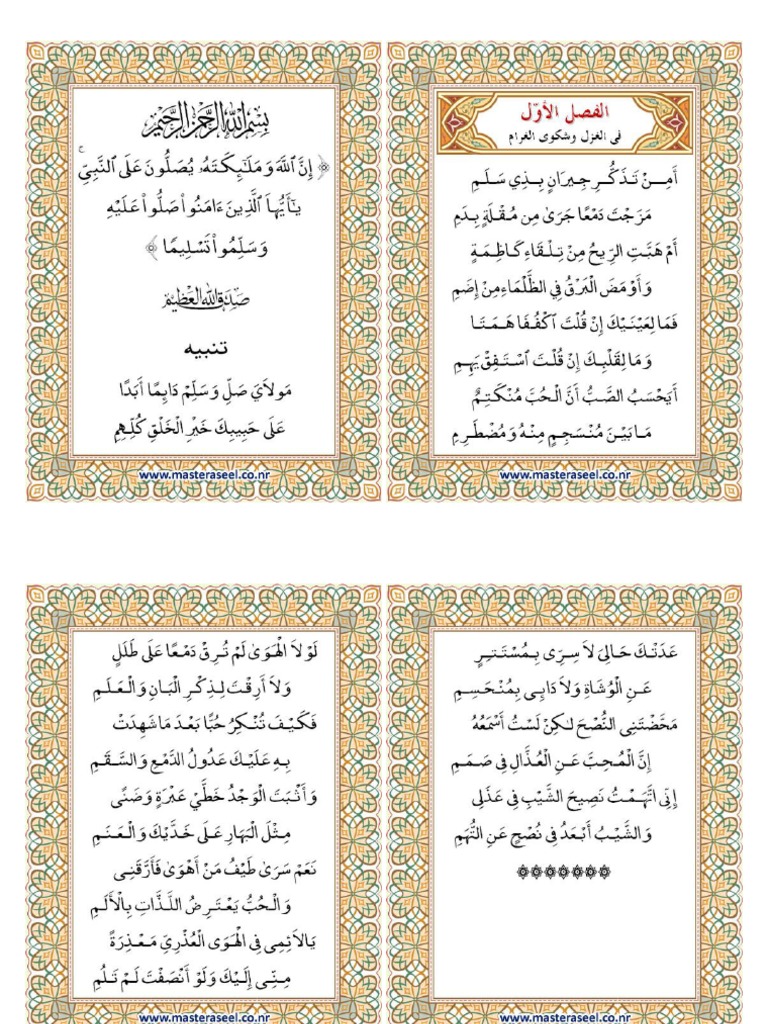 بِسْمِ اللَّهِ الرَّحْمٰنِ الرَّحِيْمِ
﴿ إِنَّ ٱللَّهَ وَمَلَٰٓئِكَتَهُۥ يُصَلُّونَ عَلَى ٱلنَّبِيِّۚ
يَٰٓأَيُّهَا ٱلَّذِينَ ءَامَنُوا۟ صَلُّوا۟ عَلَيْهِ
وَسَلِّمُوا۟ تَسْلِيمًا ﴾
صدق الله العظيم
تنبيه
مَوْلَايَ صَلِّ وَسَلِّمْ دَايِمًا أَبَدًا
عَلَى حَبِيبِكَ خَيْرِ الْخَلْقِ كُلِّهِمِ
www.masteraseel.co.nr
الفصل الأوّل
فى الغزل وشكوى الغرام
أَمِنْ تَذَكُّرِ جِيرَانٍ بِذِي سَلَمِ
مَزَجْتَ دَمْعًا جَرَىٰ مِن مُقْلَةٍ بِدَمِ
أَمْ هَبَّتِ الرِّيحُ مِنْ تِلْقَاءِ كَاظِمَةٍ
وَأَوْمَضَ الْبَرْقُ فِي الظَّلْمَاءِ مِنْ إِضَمِ
فَمَا لِعَيْنَيْكَ إِنْ قُلْتَ اكْفُفَا هَمَتَا
وَمَا لِقَلْبِكَ إِنْ قُلْتَ اسْتَفِقْ يَهِمِ
أَيَحْسَبُ الصَّبُّ أَنَّ الْحُبَّ مُنْكَتِمٌ
مَا بَيْنَ مُنْسَجِمٍ مِنْهُ وَمُضْطَرِمِ
www.masteraseel.co.nr
لَوْلاَ الْهَوَىٰ لَمْ تُرِقْ دَمْعًا عَلَى طَلَلٍ
وَلاَ أَرِقْتَ لِذِكْرِ الْبَانِ وَالْعَلَمِ
فَكَيْفَ تُنْكِرُ حُبًّا بَعْدَ مَا شَهِدَتْ
بِهِ عَلَيْكَ عَدُولُ الدَّمْعِ وَالسَّقَمِ
وَأَثْبَتَ الْوَجْدُ خَطَّيْ عَبْرَةٍ وَضَنًى
مِثْلَ الْبَهَارِ عَلَى خَدَّيْكَ وَالْعَنَمِ
نَعَمْ سَرَىٰ طَيْفُ مَنْ أَهْوَىٰ فَأَرَّقَنِى
وَالْحُبُّ يَعْتَرِضُ اللَّذَّاتِ بِالْأَلَمِ
يَا لَائِمِى فِى الْهَوَى الْعُذْرِيِّ مَعْذِرَةً
مِنِّى إِلَيْكَ وَلَوْ أَنْصَفْتَ لَمْ تَلُمِ
www.masteraseel.co.nr
عَدَتْكَ حَالِىَ لاَ سِرِّى بِمُسْتَتِرٍ
عَنِ الْوُشَاةِ وَلاَ دَائِى بِمُنْحَسِمِ
مَحَّضْتَنِى النُّصْحَ لَكِنْ لَسْتُ أَسْمَعُهُ
إِنَّ الْمُحِبَّ عَنِ الْعُذَّالِ فِى صَمَمِ
إِنِّى اتَّهَمْتُ نَصِيحَ الشَّيْبِ فِى عَذَلِى
وَالشَّيْبُ أَبْعَدُ فِى نُصْحٍ عَنِ التُّهَمِ
www.masteraseel.co.nr